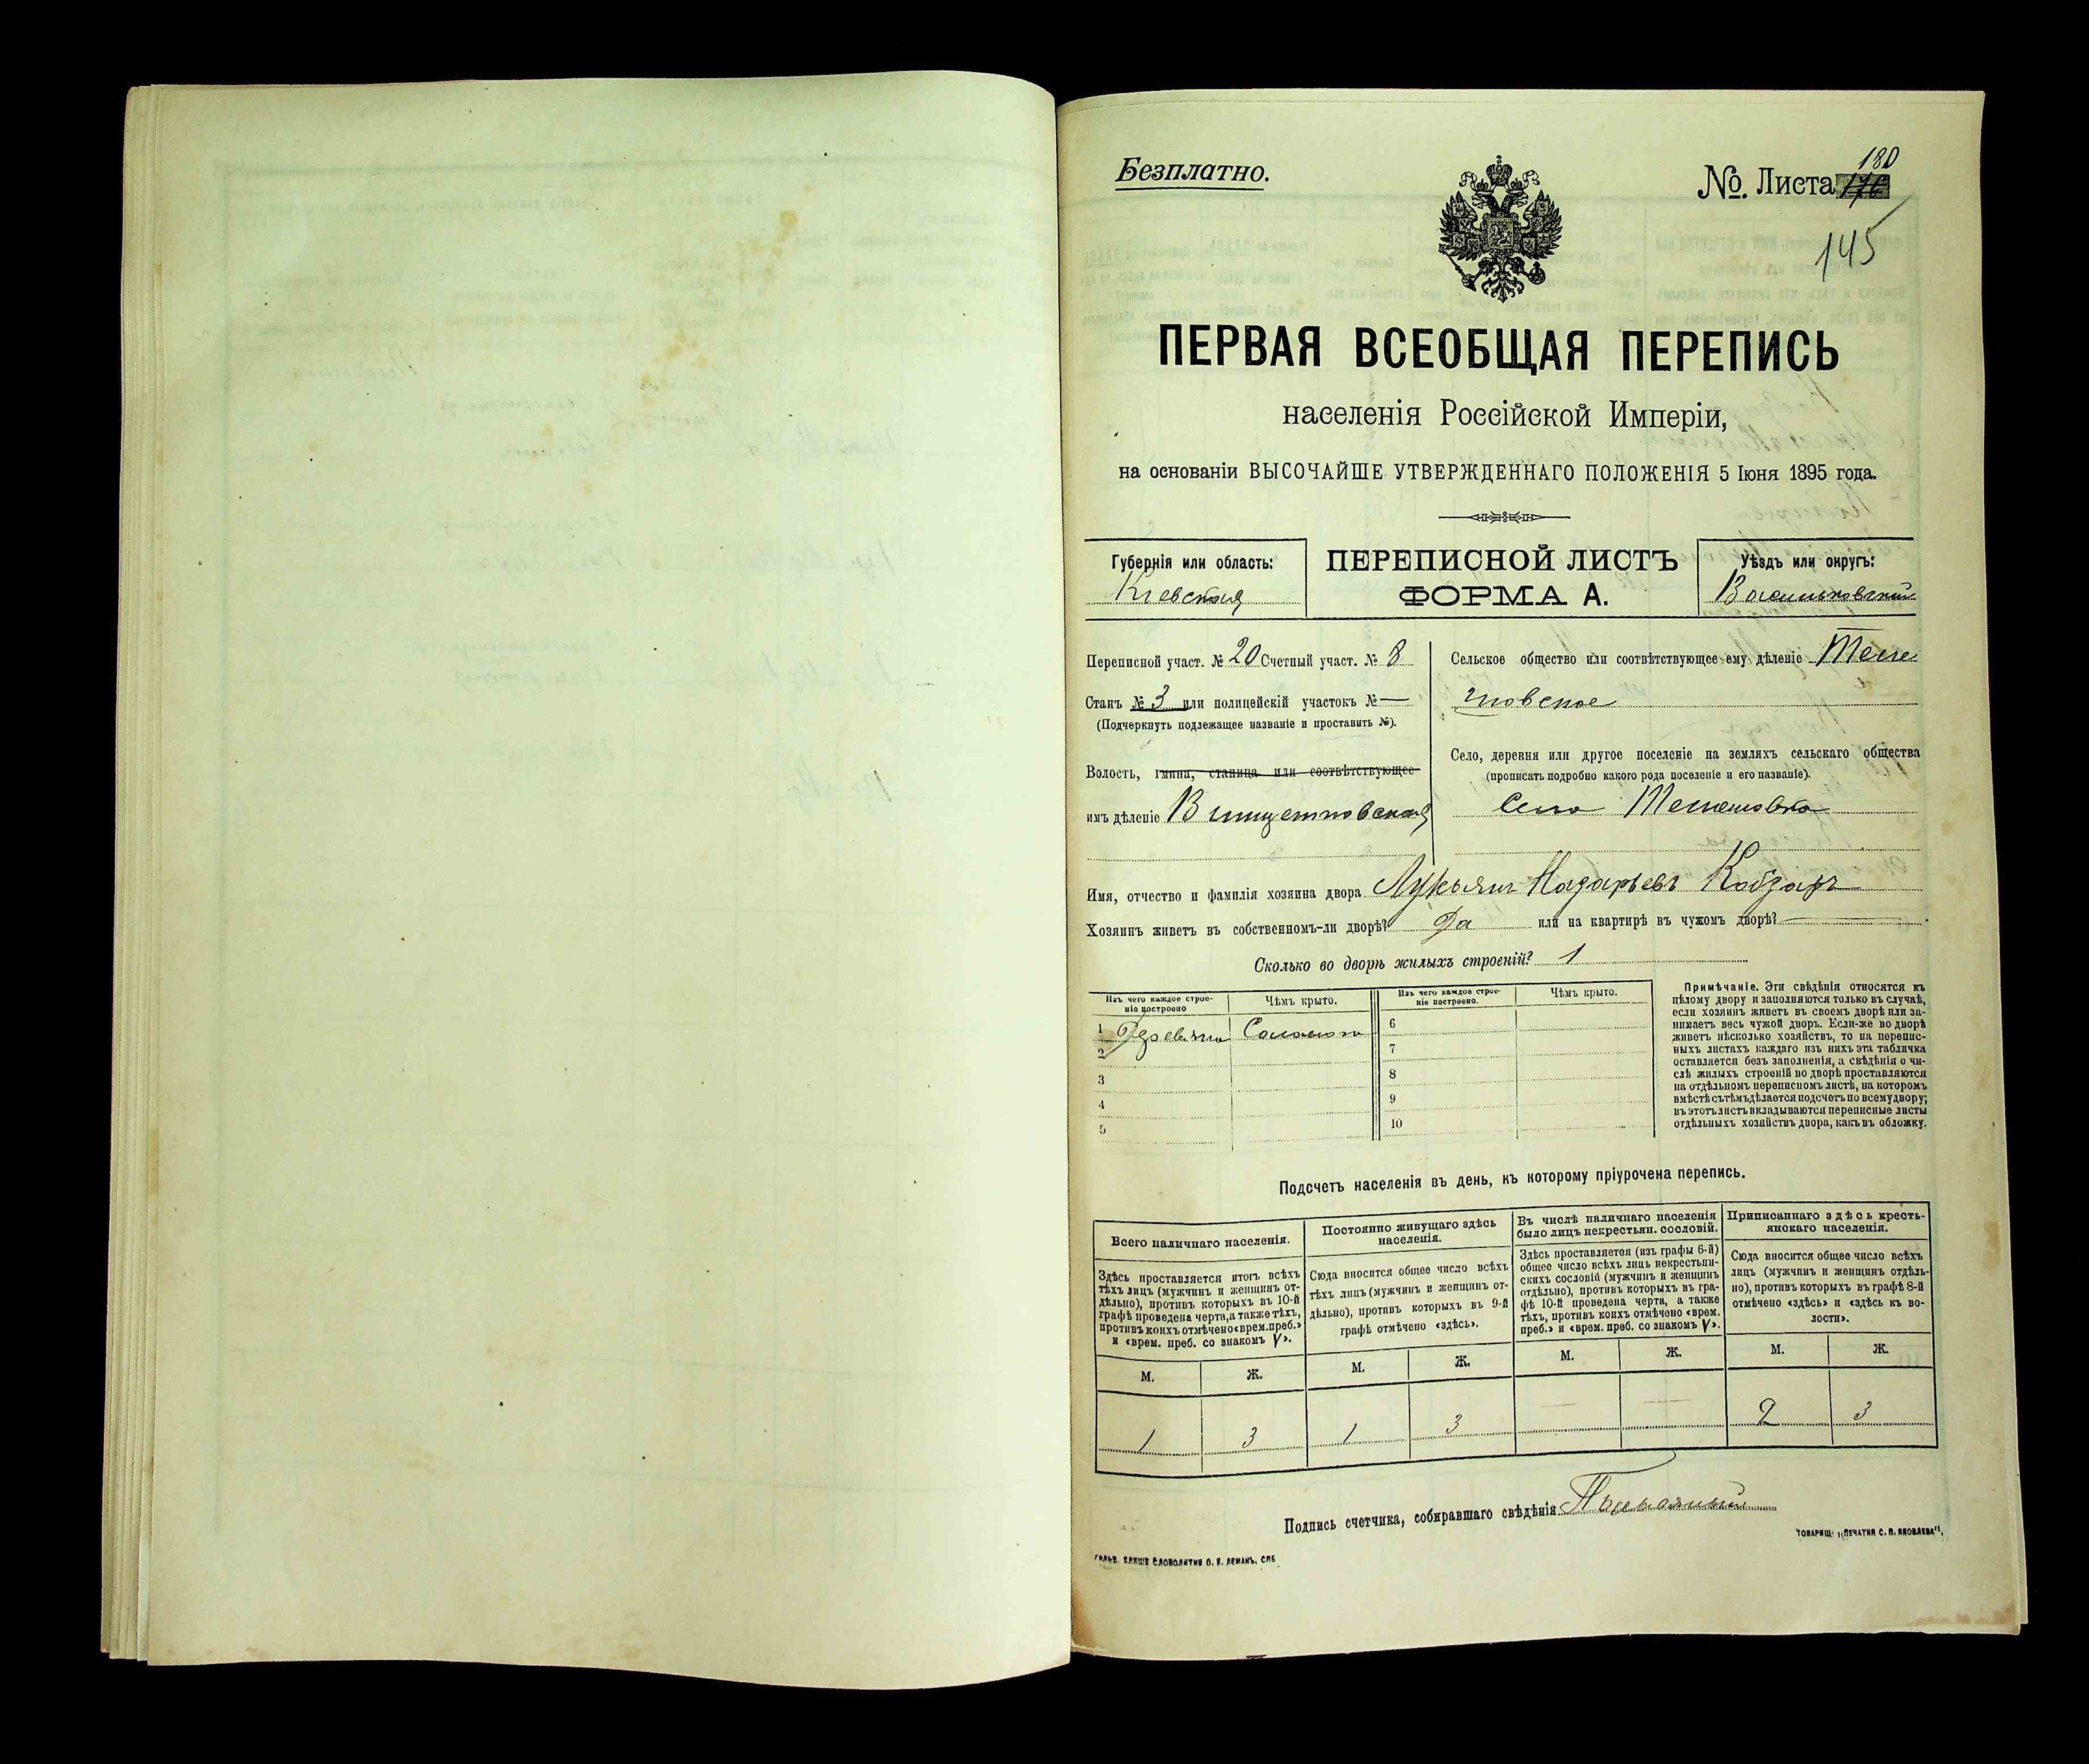 Безплатно.
№ Листа 180
176
145
ПЕРВАЯ ВСЕОБЩАЯ ПЕРЕПИСЬ
населенія Россійской Имперіи,
на основаніи ВЫСОЧАЙШЕ УТВЕРЖДЕННАГО ПОЛОЖЕНІЯ 5 Іюня 1895 года.
Губернія или область:
Кіевская
ПЕРЕПИСНОЙ ЛИСТЪ
ФОРМА А.
Уѣздъ или округъ:
Васильковскій
Переписной участ. № 20 Счетный участ. № 8
Станъ № 3 или полицейскій участокъ № —
(Подчеркнуть подлежащее названіе и проставить №).
Волость, гмина, станица или соотвѣтствующее
имъ дѣленіе Винцентовская
Сельское общество или соотвѣтствующее ему дѣленіе Теле
шовское
Село, деревня или другое поселеніе на земляхъ сельскаго общества
(прописать подробно какого рода поселеніе и его названіе).
Село Телешовка
Имя, отчество и фамилія хозяина двора Лукьянъ Назарьевъ Кобзарь
Хозяинъ живетъ въ собственномъ-ли дворѣ? Да или на квартирѣ въ чужомъ дворѣ? —
Сколько во дворѣ жилыхъ строеній? 1
Изъ чего каждое строе-
ніе построено
Чѣмъ крыто.
Изъ чего каждое строе-
ніе построено.
Чѣмъ крыто.
1 Деревяно Соломою
2
3
4
5
6
7
8
9
10
Примѣчаніе. Эти свѣдѣнія относятся къ
цѣлому двору и заполняются только въ случаѣ,
если хозяинъ живетъ въ своемъ дворѣ или за-
нимаетъ весь чужой дворъ. Если-же во дворѣ
живетъ нѣсколько хозяйствъ, то на перепис-
ныхъ листахъ каждаго изъ нихъ эта табличка
оставляется безъ заполненія, а свѣдѣнія о чи-
слѣ жилыхъ строеній во дворѣ проставляются
на отдѣльномъ переписномъ листѣ, на которомъ
вмѣстѣ съ тѣмъ дѣлается подсчетъ по всему двору;
въ этотъ листъ вкладываются переписные листы
отдѣльныхъ хозяйствъ двора, какъ въ обложку.
Подсчетъ населенія въ день, къ которому пріурочена перепись.
Всего наличнаго населенія.
Здѣсь проставляется итогъ всѣхъ
тѣхъ лицъ (мужчинъ и женщинъ от-
дѣльно), противъ которыхъ въ 10-й
графѣ проведена черта, а также тѣхъ,
противъ коихъ отмѣчено «врем. преб.»
и «врем. преб. со знакомъ V».
М. Ж.
1 3
Постоянно живущаго здѣсь
населенія.
Сюда вносится общее число всѣхъ
тѣхъ лицъ (мужчинъ и женщинъ от-
дѣльно), противъ которыхъ въ 9-й
графѣ отмѣчено «здѣсь».
М. Ж.
1 3
Въ числѣ наличнаго населенія
было лицъ некрестьян. сословій.
Здѣсь проставляется (изъ графы 6-й)
общее число всѣхъ лицъ некрестьян-
скихъ сословій (мужчинъ и женщинъ
отдѣльно), противъ которыхъ въ гра-
фѣ 10-й проведена черта, а также
тѣхъ, противъ коихъ отмѣчено «врем.
преб.» и «врем. преб. со знакомъ V».
М. Ж.
— —
Приписаннаго здѣсь кресть-
янскаго населенія.
Сюда вносится общее число всѣхъ
лицъ (мужчинъ и женщинъ отдѣль-
но), противъ которыхъ въ графѣ 8-й
отмѣчено «здѣсь» и «здѣсь къ во-
лости».
М. Ж.
2 3
Подпись счетчика, собиравшаго свѣдѣнія
ТОВАРИЩ. „ПЕЧАТНЯ С. П. ЯКОВЛЕВА“.
ГАЛЬВ. КЛИШЕ СЛОВОЛИТНИ О. И. ЛЕМАНЪ, СПБ